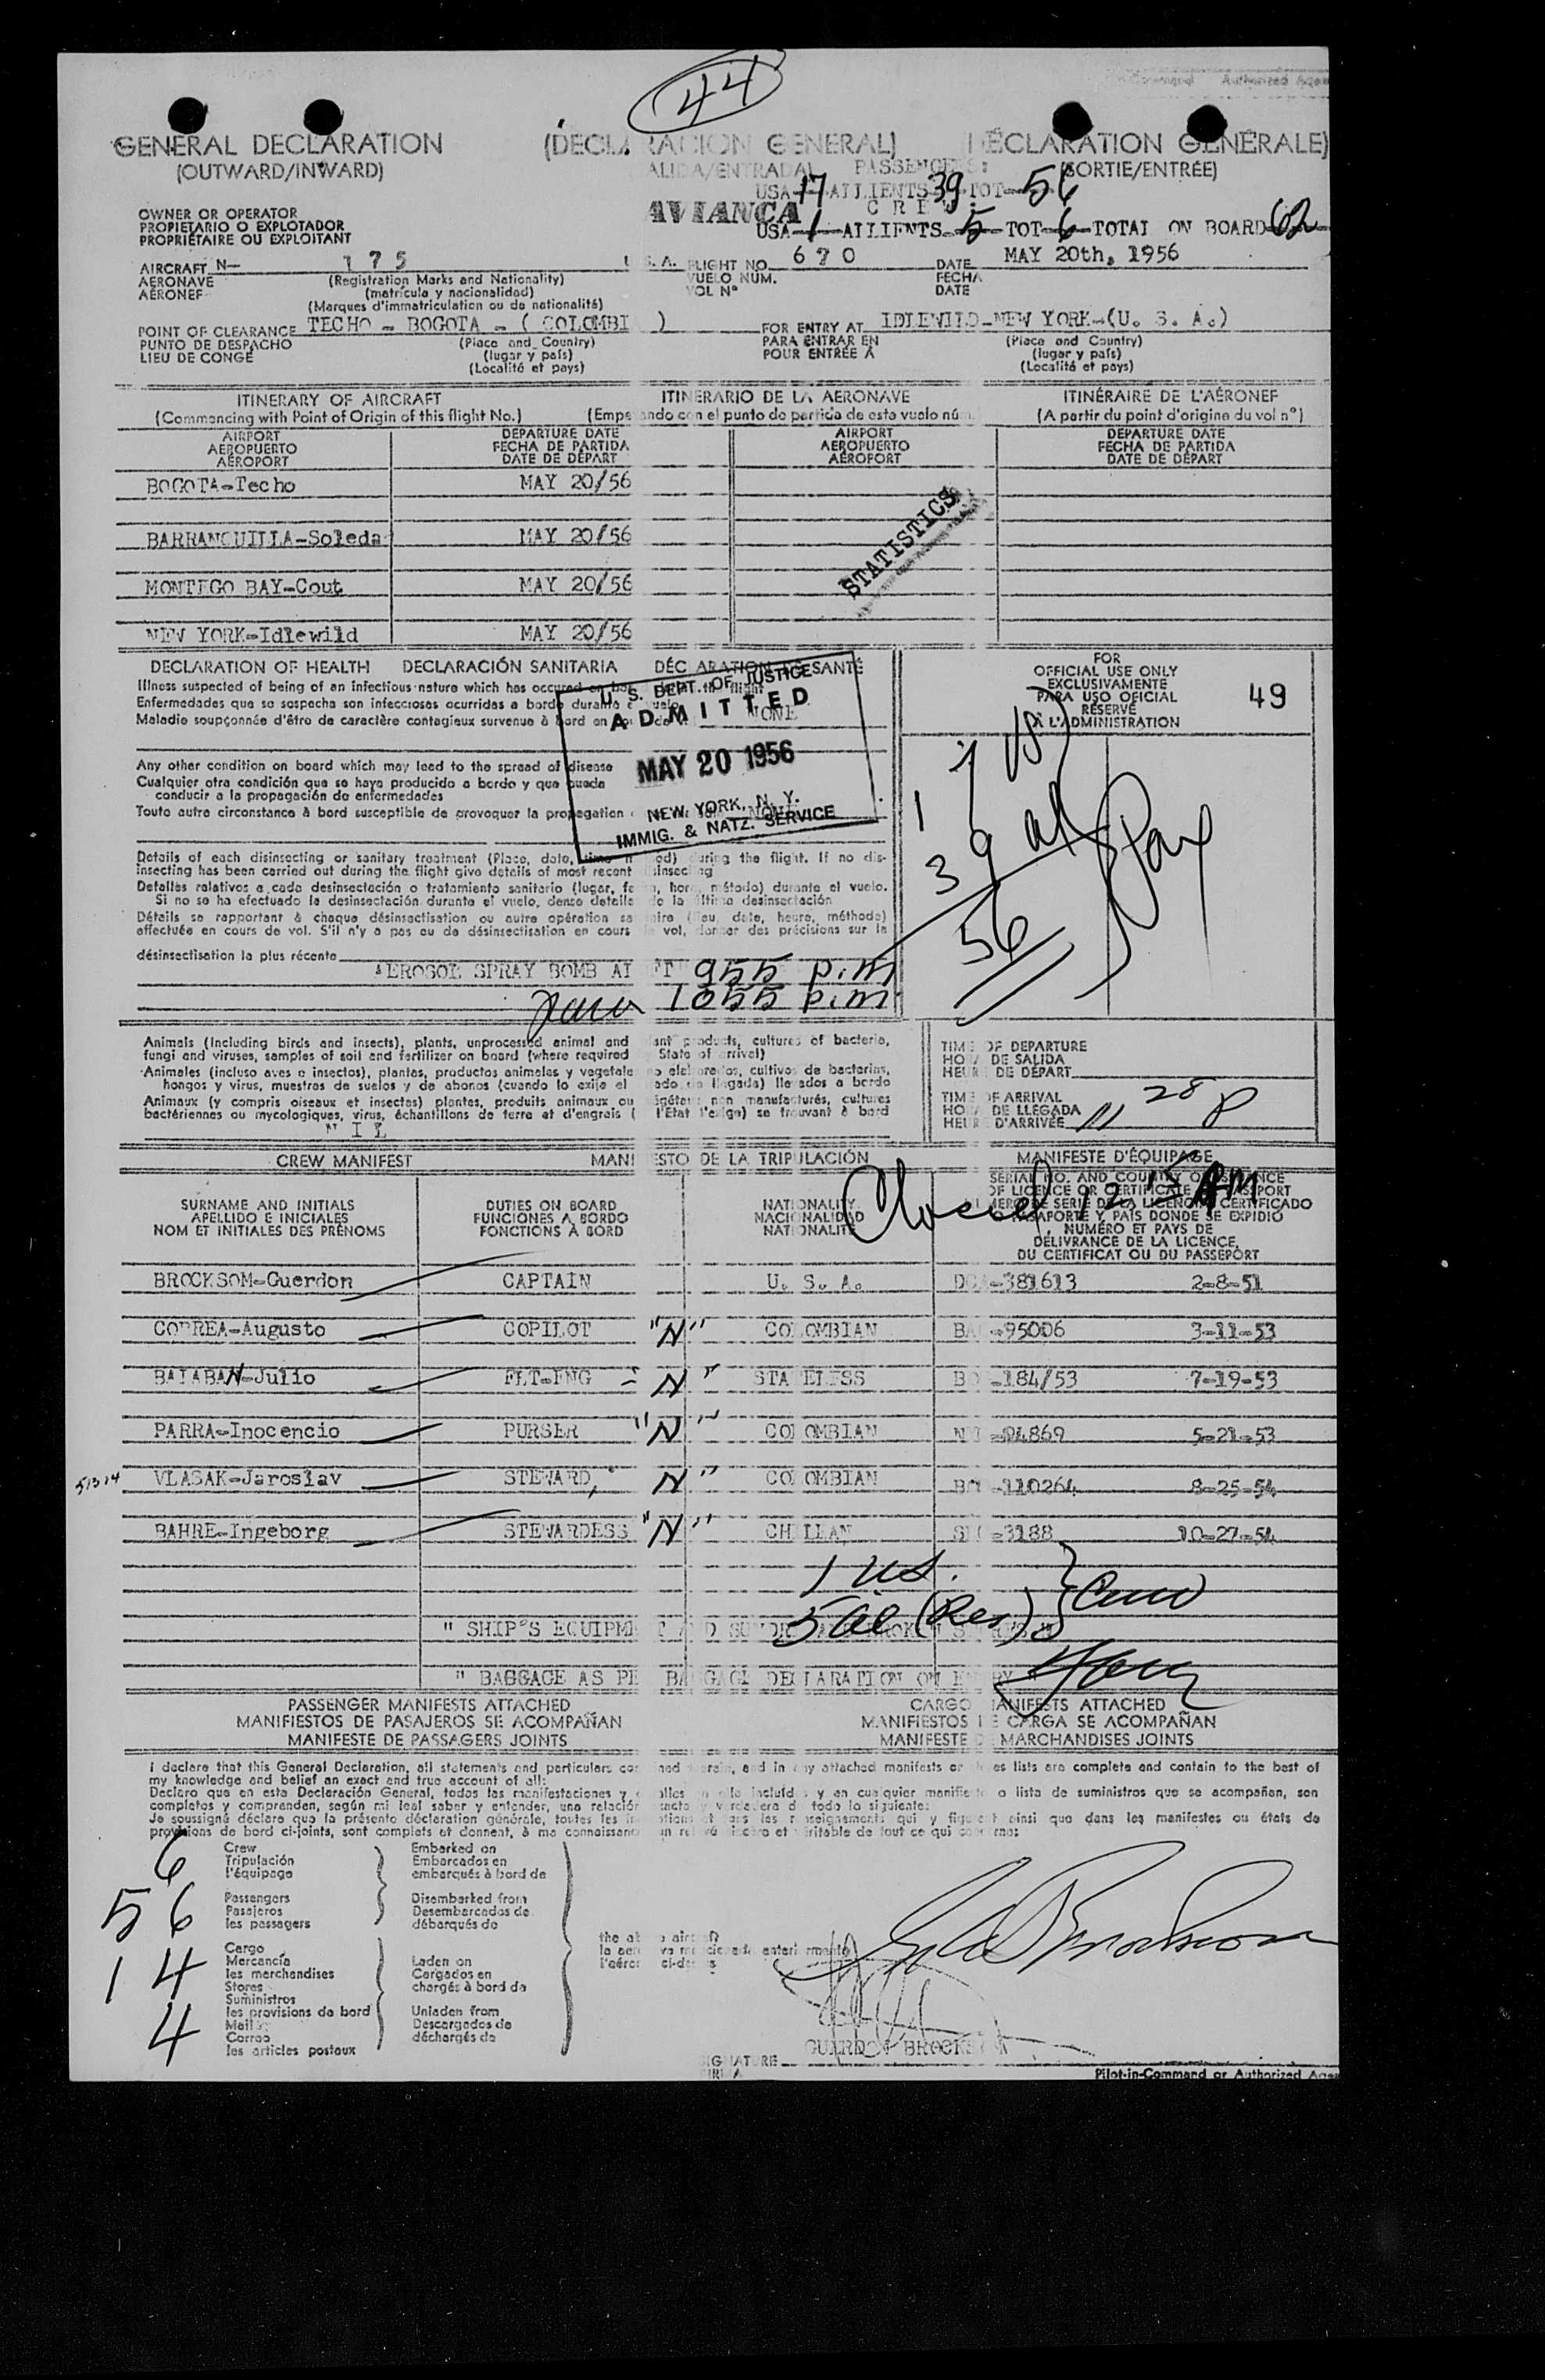 44
Command Authorized Agen
GENERAL DECLARATION (DECLARACION GENERAL) (DÉCLARATION GÉNÉRALE)
(OUTWARD/INWARD) (SALIDA/ENTRADA) (SORTIE/ENTRÉE)
PASSENGERS:
USA-17-ALLIENTS-39-TOT-56
OWNER OR OPERATOR AVIANCA
PROPIETARIO O EXPLOTADOR
USA-1-ALLIENTS-5-TOT-6-TOTAL ON BOARD-62
PROPRIÉTAIRE OU EXPLOITANT
AIRCRAFT N- 175 U.S.A. FLIGHT NO. 670 DATE MAY 20th, 1956
AÉRONAVE (Registration Marks and Nationality) VUELO NUM. FECHA
AÉRONEF (matrícula y nacionalidad) VOL Nº DATE
(Marques d'immatriculation ou de nationalité)
POINT OF CLEARANCE TECHO - BOGOTA - ( COLOMBI ) FOR ENTRY AT IDLEWILD-NEW YORK-(U. S. A.)
PUNTO DE DESPACHO (Place and Country) PARA ENTRAR EN (Place and Country)
LIEU DE CONGÉ (lugar y país) POUR ENTRÉE À (lugar y país)
(Localité et pays) (Localité et pays)
ITINERARY OF AIRCRAFT ITINERARIO DE LA AERONAVE ITINÉRAIRE DE L'AÉRONEF
(Commencing with Point of Origin of this flight No.) (Empe ando con el punto de partida de este vuelo núm.) (A partir du point d'origine du vol nº)
AIRPORT DEPARTURE DATE AIRPORT DEPARTURE DATE
AEROPUERTO FECHA DE PARTIDA AEROPUERTO FECHA DE PARTIDA
AÉROPORT DATE DE DÉPART AÉROPORT DATE DE DÉPART
BOGOTA-Techo MAY 20/56
STATISTICS
BARRANQUILLA-Soleda MAY 20/56
MONTEGO BAY-Cout MAY 20/56
NEW YORK-Idlewild MAY 20/56
DECLARATION OF HEALTH DECLARACIÓN SANITARIA DÉCLARATION DE SANTÉ
Illness suspected of being of an infectious nature which has occured on board during the flight
Enfermedades que se sospecha son infecciosas ocurridas a bordo durante el vuelo
Maladie soupçonnée d'être de caractère contagieux survenue à bord en cours de vol NONE
FOR
OFFICIAL USE ONLY
EXCLUSIVAMENTE
PARA USO OFICIAL
RÉSERVÉ
À L'ADMINISTRATION
49
U. S. DEPT. OF JUSTICE
ADMITTED
MAY 20 1956
NEW YORK, N. Y.
IMMIG. & NATZ. SERVICE
Any other condition on board which may lead to the spread of disease
Cualquier otra condición que se haya producido a bordo y que pueda
conducir a la propagación de enfermedades
Toute autre circonstance à bord susceptible de provoquer la propagation
17 US
39 al
56
Pax
Details of each disinsecting or sanitary treatment (Place, date, time method) during the flight. If no dis-
insecting has been carried out during the flight give details of most recent disinsecting
Detalles relativos a cada desinsectación o tratamiento sanitario (lugar, fecha, hora, método) durante el vuelo.
Si no se ha efectuado la desinsectación durante el vuelo, dense detalle de la última desinsectación
Détails se rapportant à chaque désinsectisation ou autre opération sanitaire (lieu, date, heure, méthode)
effectuée en cours de vol. S'il n'y a pas eu de désinsectisation en cours de vol, donner des précisions sur la
désinsectisation la plus récente
AEROSOL SPRAY BOMB 955 p.m
1055 p.m.
Animals (including birds and insects), plants, unprocessed animal and plant products, cultures of bacteria,
fungi and viruses, samples of soil and fertilizer on board (where required State of arrival)
Animales (incluso aves e insectos), plantas, productos animales y vegetales no elaborados, cultivos de bacterias,
hongos y virus, muestras de suelos y de abonos (cuando lo exija el Estado de llegada) llevados a bordo
Animaux (y compris oiseaux et insectes) plantes, produits animaux ou végétaux non manufacturés, cultures
bactériennes ou mycologiques, virus, échantillons de terre et d'engrais (si l'État l'exige) se trouvant à bord
NIL
TIME OF DEPARTURE
HORA DE SALIDA
HEURE DE DÉPART
TIME OF ARRIVAL
HORA DE LLEGADA
HEURE D'ARRIVÉE 11 28 P
CREW MANIFEST MANIFIESTO DE LA TRIPULACIÓN MANIFESTE D'ÉQUIPAGE
Closed 12 15 AM
SURNAME AND INITIALS DUTIES ON BOARD NATIONALITY SERIAL NO. AND COUNTRY OF ISSUANCE
APELLIDO E INICIALES FUNCIONES A BORDO NACIONALIDAD OF LICENCE OR CERTIFICATE OR PASSPORT
NOM ET INITIALES DES PRÉNOMS FONCTIONS À BORD NATIONALITÉ NUMERO DE SERIE DE LA LICENCIA, CERTIFICADO
O PASAPORTE Y PAÍS DONDE SE EXPIDIÓ
NUMÉRO ET PAYS DE
DÉLIVRANCE DE LA LICENCE,
DU CERTIFICAT OU DU PASSEPORT
BROCKSOM-Guerdon CAPTAIN U. S. A. -381613 2-8-51
CORREA-Augusto COPILOT "N" COLOMBIAN -95006 3-11-53
BALABAN-Julio FLT-ENG "N" STATELESS -184/53 7-19-53
PARRA-Inocencio PURSER "N" COLOMBIAN -04869 5-21-53
51314 VLASAK-Jaroslav STEWARD, N" COLOMBIAN -110264 8-25-54
BAHRE-Ingeborg STEWARDESS "N" CHILEAN -3188 10-27-54
1 US.
5 al (Res) } Crew
" SHIP'S EQUIPMENT AND SUNDR BROKEN STORES "
" BAGGAGE AS PER BAGGAGE DECLARATION ON ENTRY
PASSENGER MANIFESTS ATTACHED CARGO MANIFESTS ATTACHED
MANIFIESTOS DE PASAJEROS SE ACOMPAÑAN MANIFIESTOS DE CARGA SE ACOMPAÑAN
MANIFESTE DE PASSAGERS JOINTS MANIFESTE DE MARCHANDISES JOINTS
I declare that this General Declaration, all statements and particulars contained herein, and in any attached manifests or stores lists are complete and contain to the best of
my knowledge and belief an exact and true account of all:
Declaro que en esta Declaración General, todas las manifestaciones y detalles en ella incluídos y en cualquier manifiesto o lista de suministros que se acompañan, son
completos y comprenden, según mi leal saber y entender, una relación exacta y verdadera de todo lo siguiente:
Je soussigné déclare que la présente déclaration générale, toutes les indications et tous les renseignements qui y figurent ainsi que dans les manifestes ou états de
provisions de bord ci-joints, sont complets et donnent, à ma connaissance un relevé sincère et véritable de tout ce qui concerne:
6 Crew Embarked on
Tripulación Embarcados en
l'équipage embarqués à bord de
56 Passengers Disembarked from
Pasajeros Desembarcados de
les passagers débarqués de
14 Cargo
Mercancía Laden on
les marchandises Cargados en
Stores chargés à bord de
Suministros
les provisions de bord Unladen from
4 Mail Descargados de
Correo déchargés de
les articles postaux
the above aircraft
la aeronave mencionada anteriormente
l'aéronef ci-dessus
SIGNATURE GUARDON BROCKSOM
FIRMA
Pilot-in-Command or Authorized Agen